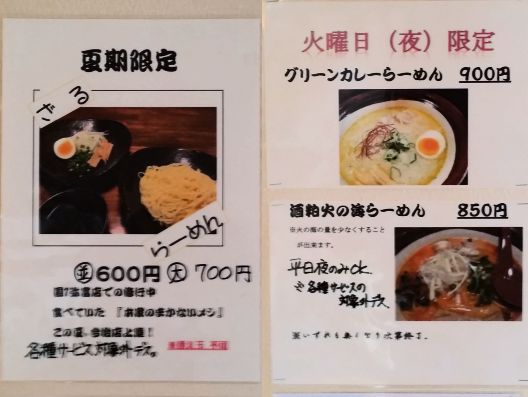 夏期限定
だる
らーめん
並600円 大700円
食べていた『お凛のまかないメシ』
各種サービス対象外デス。
火曜日(夜)限定
グリーンカレーらーめん 900円
酒粕火の海らーめん 850円
※火の海の量を少なくすること
が出来ます。
平日夜のみOK.
※各種サービスの
対象外デス
※いずれも無くなり次第終了。